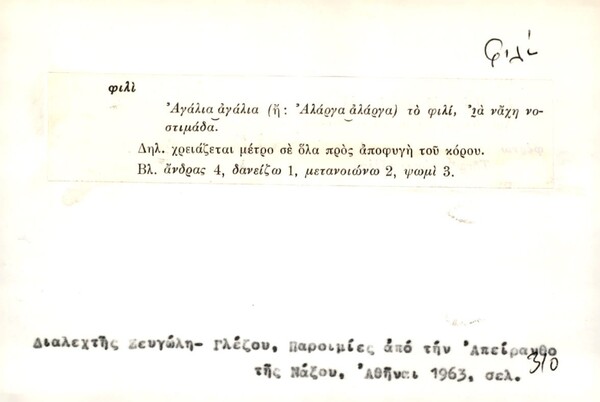 φιλί
φιλὶ
Ἀγάλια ἀγάλια (ἤ: Ἀλάργα ἀλάργα) τὸ φιλί, γιὰ νἄχη νο-
στιμάδα.
Δηλ. χρειάζεται μέτρο σὲ ὅλα πρὸς ἀποφυγὴ τοῦ κόρου.
Βλ. ἄνδρας 4, δανείζω 1, μετανοιώνω 2, ψωμὶ 3.
Διαλεχτῆς Ζευγώλη- Γλέζου, Παροιμίες ἀπό τήν Ἀπείρανθο
τῆς Νάξου, Ἀθῆναι 1963, σελ. 310